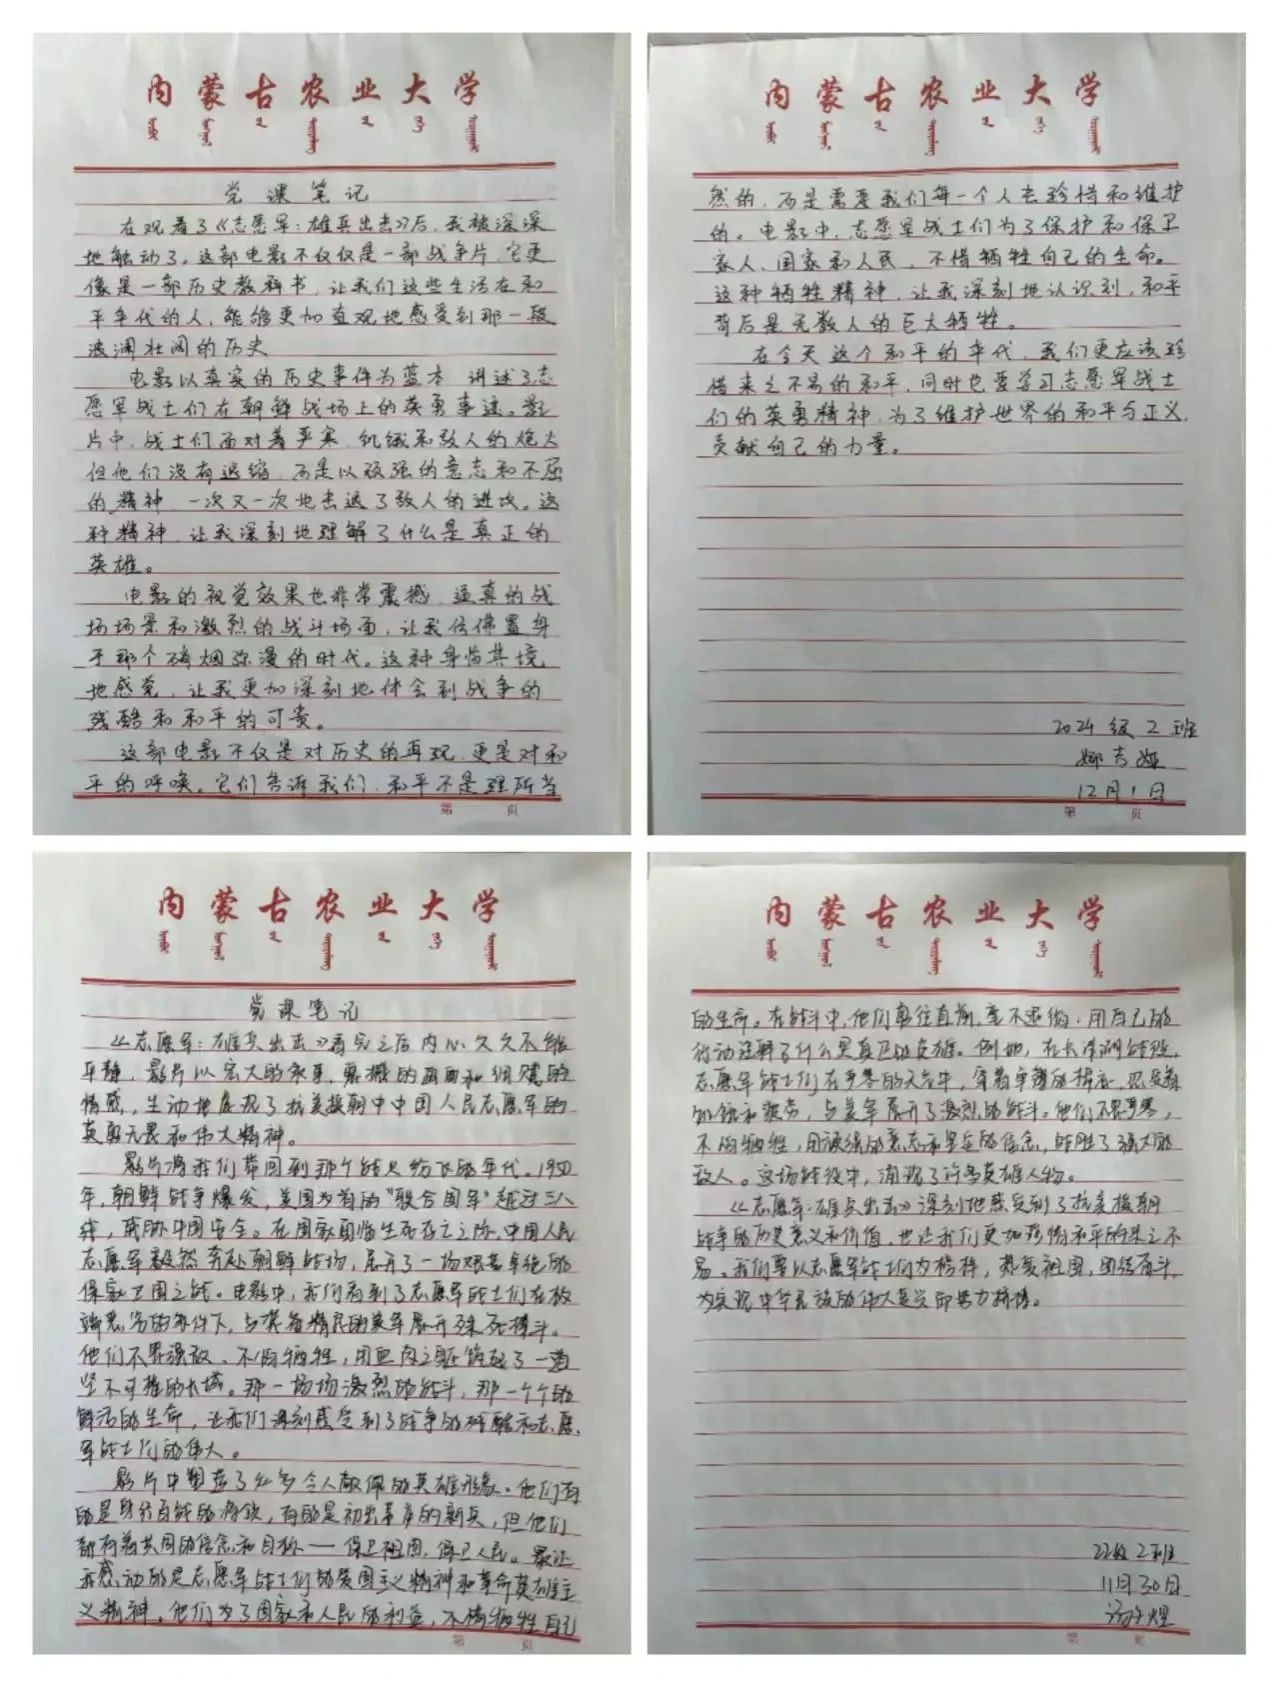 内蒙古农业大学
党课笔记
在观看了《志愿军：雄兵出击》后，我被深深
地触动了。这部电影不仅仅是一部战争片，它更
像是一部历史教科书，让我们这些生活在和
平年代的人，能够更加直观地感受到那一段
波澜壮阔的历史
电影以真实的历史事件为蓝本 讲述了志
愿军战士们在朝鲜战场上的英勇事迹。影
片中，战士们面对着严寒、饥饿和敌人的炮火
但他们没有退缩，而是以顽强的意志和不屈
的精神，一次又一次地击退了敌人的进攻。这
种精神，让我深刻地理解了什么是真正的
英雄。
电影的视觉效果也非常震撼，逼真的战
场场景和激烈的战斗场面，让我仿佛置身
于那个硝烟弥漫的时代。这种身临其境
地感觉，让我更加深刻地体会到战争的
残酷和和平的可贵。
这部电影不仅是对历史的再现，更是对和
平的呼唤。它们告诉我们，和平不是理所当
第 页
内蒙古农业大学
然的，而是需要我们每一个人去珍惜和维护
的。电影中，志愿军战士们为了保护和保卫
家人、国家和人民，不惜牺牲自己的生命。
这种牺牲精神，让我深刻地认识到，和平
背后是无数人的巨大牺牲。
在今天这个和平的年代，我们更应该珍
惜来之不易的和平，同时也要学习志愿军战士
们的英勇精神，为了维护世界的和平与正义，
贡献自己的力量。
2024级2班
娜吉娅
12月1日
第 页
内蒙古农业大学
党课笔记
《志愿军：雄兵出击》看完之后内心久久不能
平静，影片以宏大的叙事，震撼的画面和细腻的
情感，生动地展现了抗美援朝中中国人民志愿军的
英勇无畏和伟大精神。
影片将我们带回到那个战火纷飞的年代。1950
年，朝鲜战争爆发，美国为首的“联合国军”越过三八
线，威胁中国安全。在国家面临生死存亡之际，中国人民
志愿军毅然奔赴朝鲜战场，展开了一场艰苦卓绝的
保家卫国之战。电影中，我们看到了志愿军战士们在极
端恶劣的条件下，与装备精良的美军展开殊死搏斗。
他们不畏强敌，不怕牺牲，用血肉之躯筑起了一道
坚不可摧的长城。那一场场激烈的战斗，那一个个的
鲜活的生命，让我们深刻感受到了战争的残酷和志愿
军战士们的伟大。
影片中塑造了众多令人敬佩的英雄形象。他们有
的是身经百战的将领，有的是初出茅庐的新兵，但他们
都有着共同的信念和目标——保卫祖国，保卫人民。最让
我感动的是志愿军战士们的爱国主义精神和革命英雄主
义精神。他们为了国家和人民的利益，不惜牺牲自己
第 页
内蒙古农业大学
的生命。在战斗中，他们勇往直前，毫不退缩，用自己的
行动诠释了什么是真正的英雄。例如，在长津湖战役，
志愿军战士们在严寒的天气中，穿着单薄的棉衣，忍受着
饥饿和疲劳，与美军展开了激烈的战斗。他们不畏严寒，
不怕牺牲，用顽强的意志和坚定的信念，战胜了强大的
敌人。这场战役中，涌现了许多英雄人物。
《志愿军：雄兵出击》深刻地感受到了抗美援朝
战争的历史意义和价值，也让我们更加珍惜和平的来之不
易。我们要以志愿军战士们为榜样，热爱祖国，团结奋斗，
为实现中华民族的伟大复兴而努力拼搏。
22级2班
11月30日
第 页